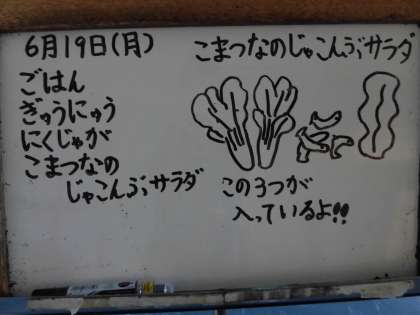 6月19日(月)
ごはん
ぎゅうにゅう
にくじゃが
こまつなの
じゃこんぶサラダ
こまつなのじゃこんぶサラダ
この3つが
入っているよ!!